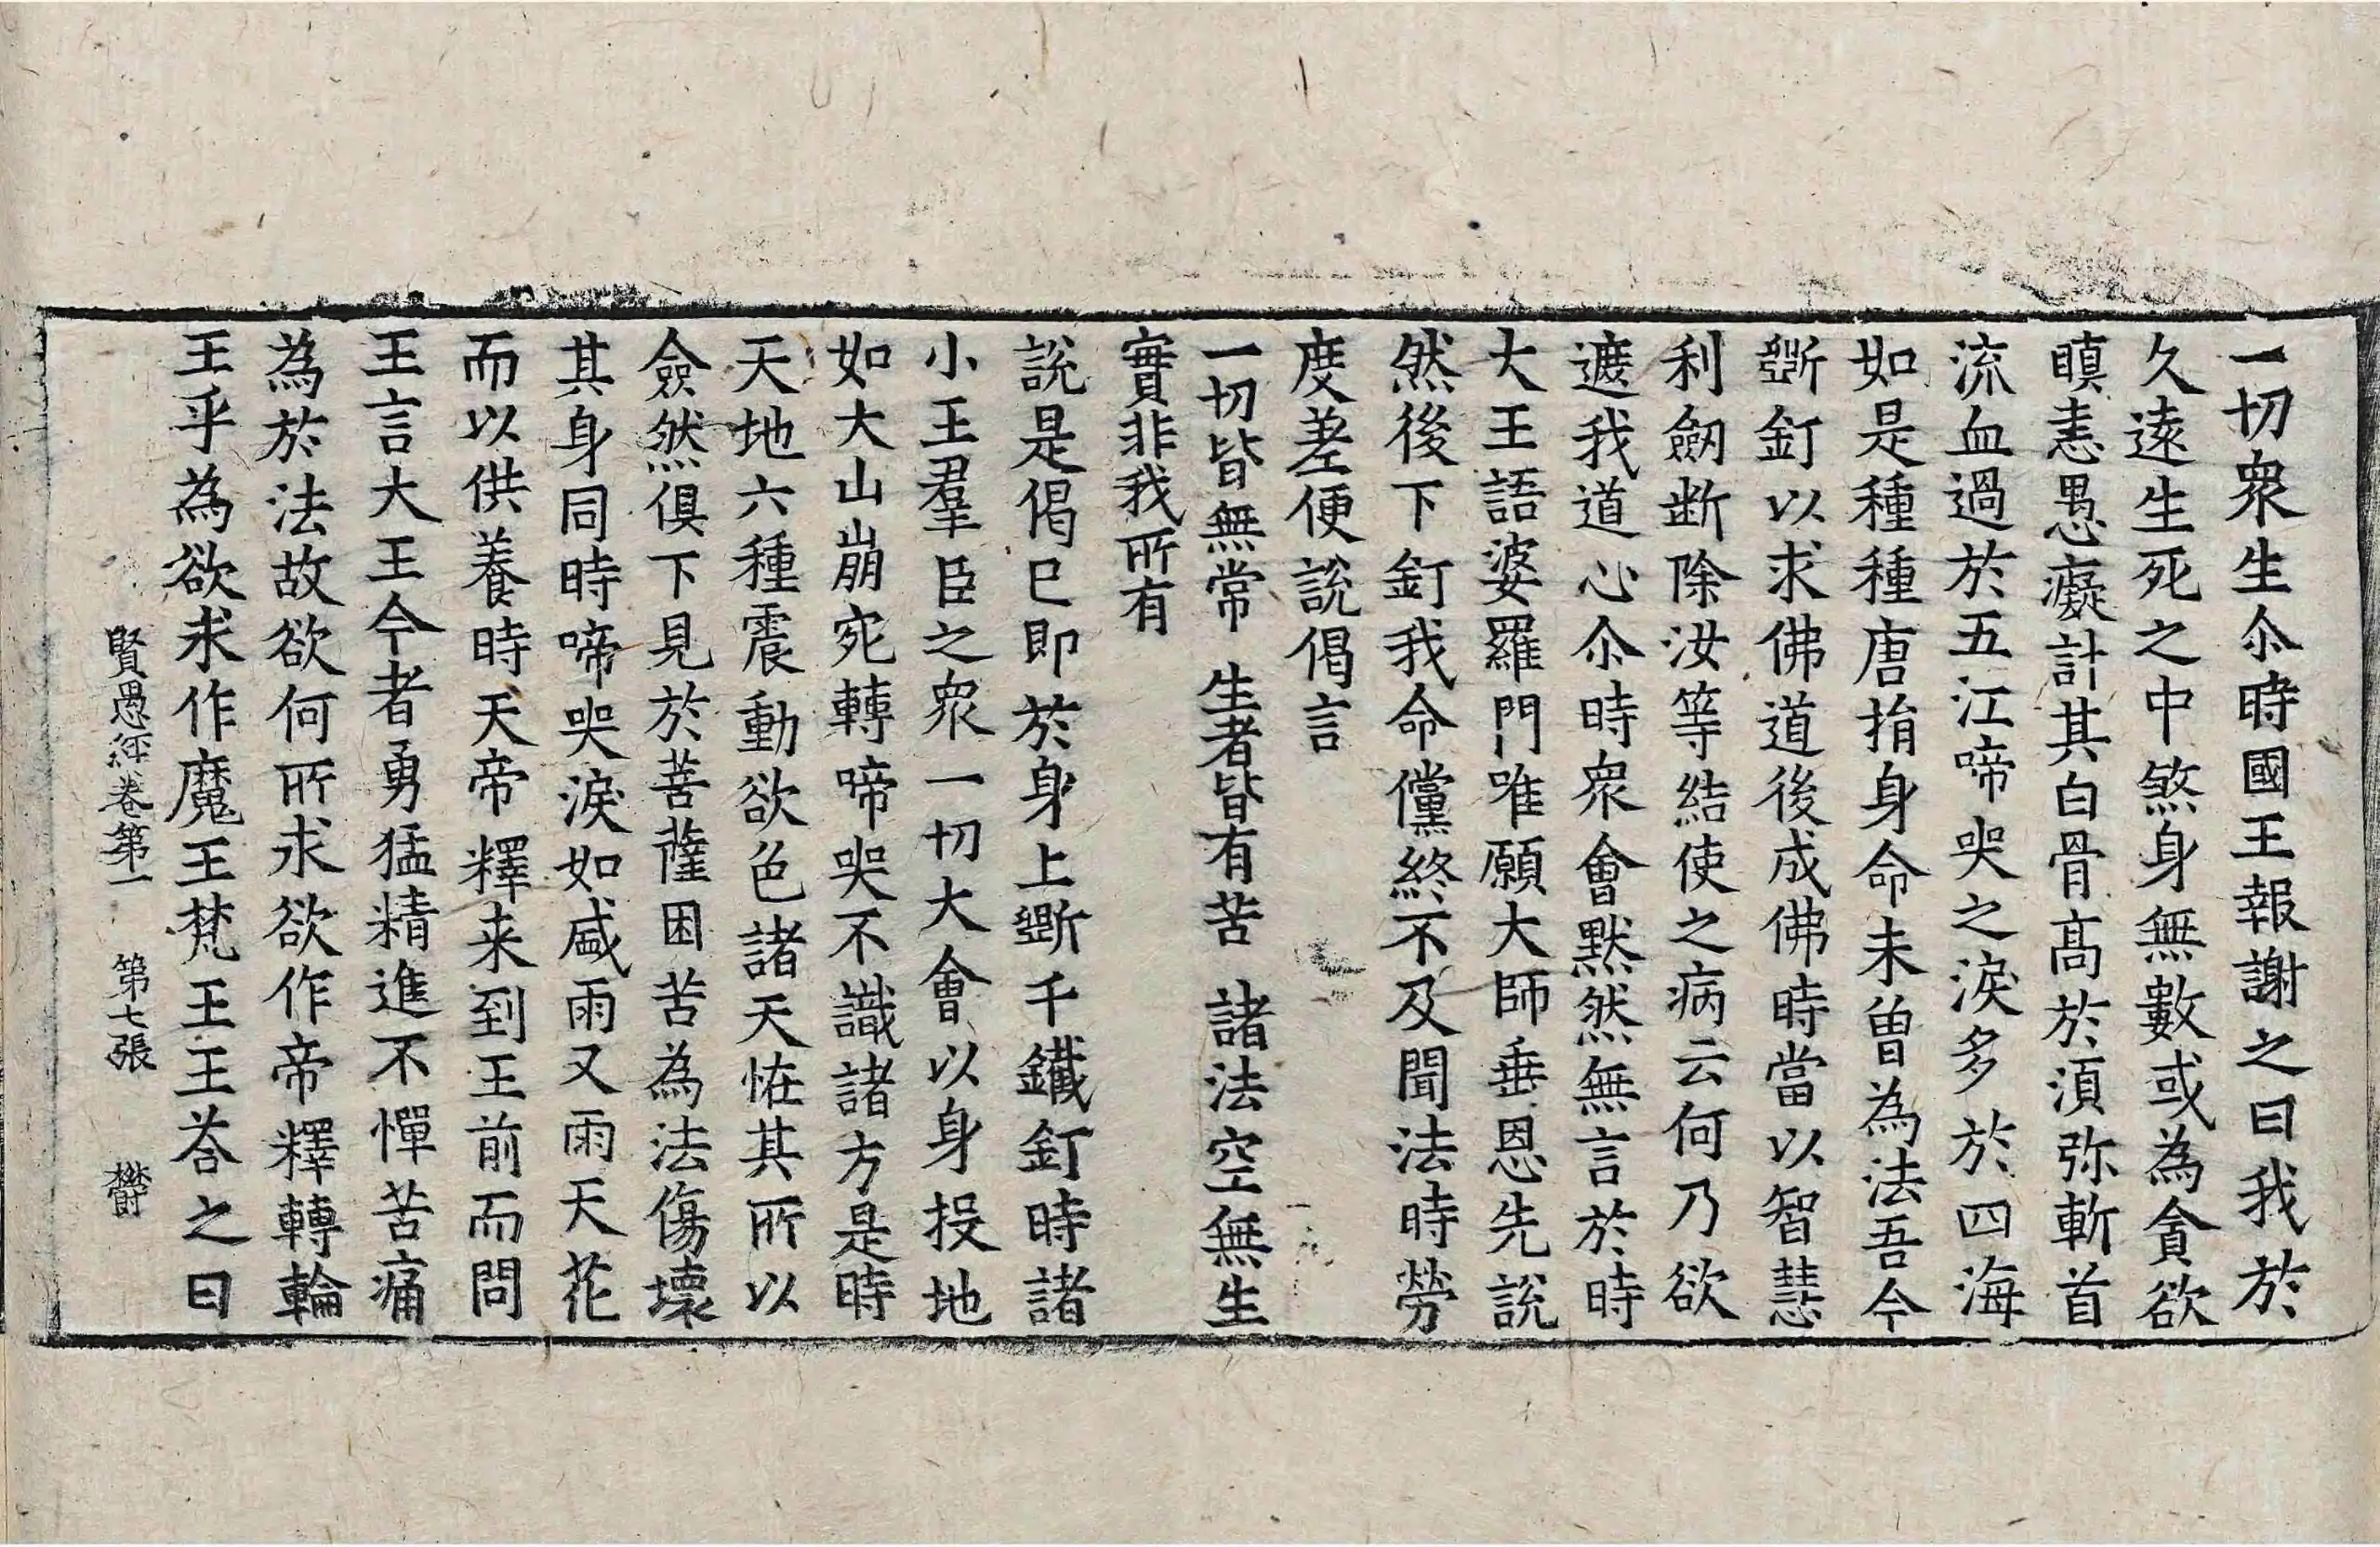 一切衆生尒時國王報謝之曰我於
久遠生死之中煞身無數或為貪欲
瞋恚愚癡計其白骨髙於湏弥斬首
流血過於五江啼哭之淚多於四海
如是種種唐捐身命未曽為法吾今
斵釘以求佛道後成佛時當以智慧
利劒断除汝等結使之病云何乃欲
遮我道心尒時衆會默然無言於時
大王語婆羅門唯願大師垂恩先說
然後下釘我命儻終不及聞法時勞
度差便說偈言
一切皆無常　生者皆有苦　諸法空無生
實非我所有
說是偈已即於身上斵千鐵釘時諸
小王羣臣之衆一切大會以身投地
如大山崩宛轉啼哭不識諸方是時
天地六種震動欲色諸天恠其所以
僉然俱下見於菩薩困苦為法傷壞
其身同時啼哭淚如盛雨又雨天花
而以供養時天帝釋来到王前而問
王言大王今者勇猛精進不憚苦痛
為於法故欲何所求欲作帝釋轉輪
王乎為欲求作魔王梵王王荅之曰
賢愚經卷第一　第七張　欝